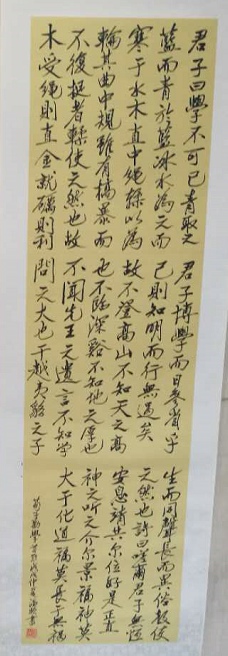 君子曰學不可已青取之
藍而青於藍冰水為之而
寒于水木直中繩輮以為
輪其曲中規雖有槁暴而
不復挺者輮使之然也故
木受繩則直金就礪則利
君子博學而日參省乎
己則知明而行無過矣
故不登高山不知天之高
也不臨深谿不知地之厚也
不聞先王之遺言不知學
問之大也干越夷貉之子
生而同聲長而異俗教使
之然也詩曰嗟爾君子無恆
安息靖共爾位好是正直
神之聽之介爾景福神莫
大于化道福莫長于無禍
荀子勸學